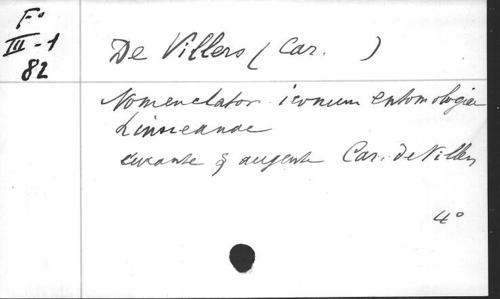 F°
III-1
82
De Villers (Car. )
Nomenclator iconum entomologiae
Linneanae
curante & augente Car. de Villers
4°